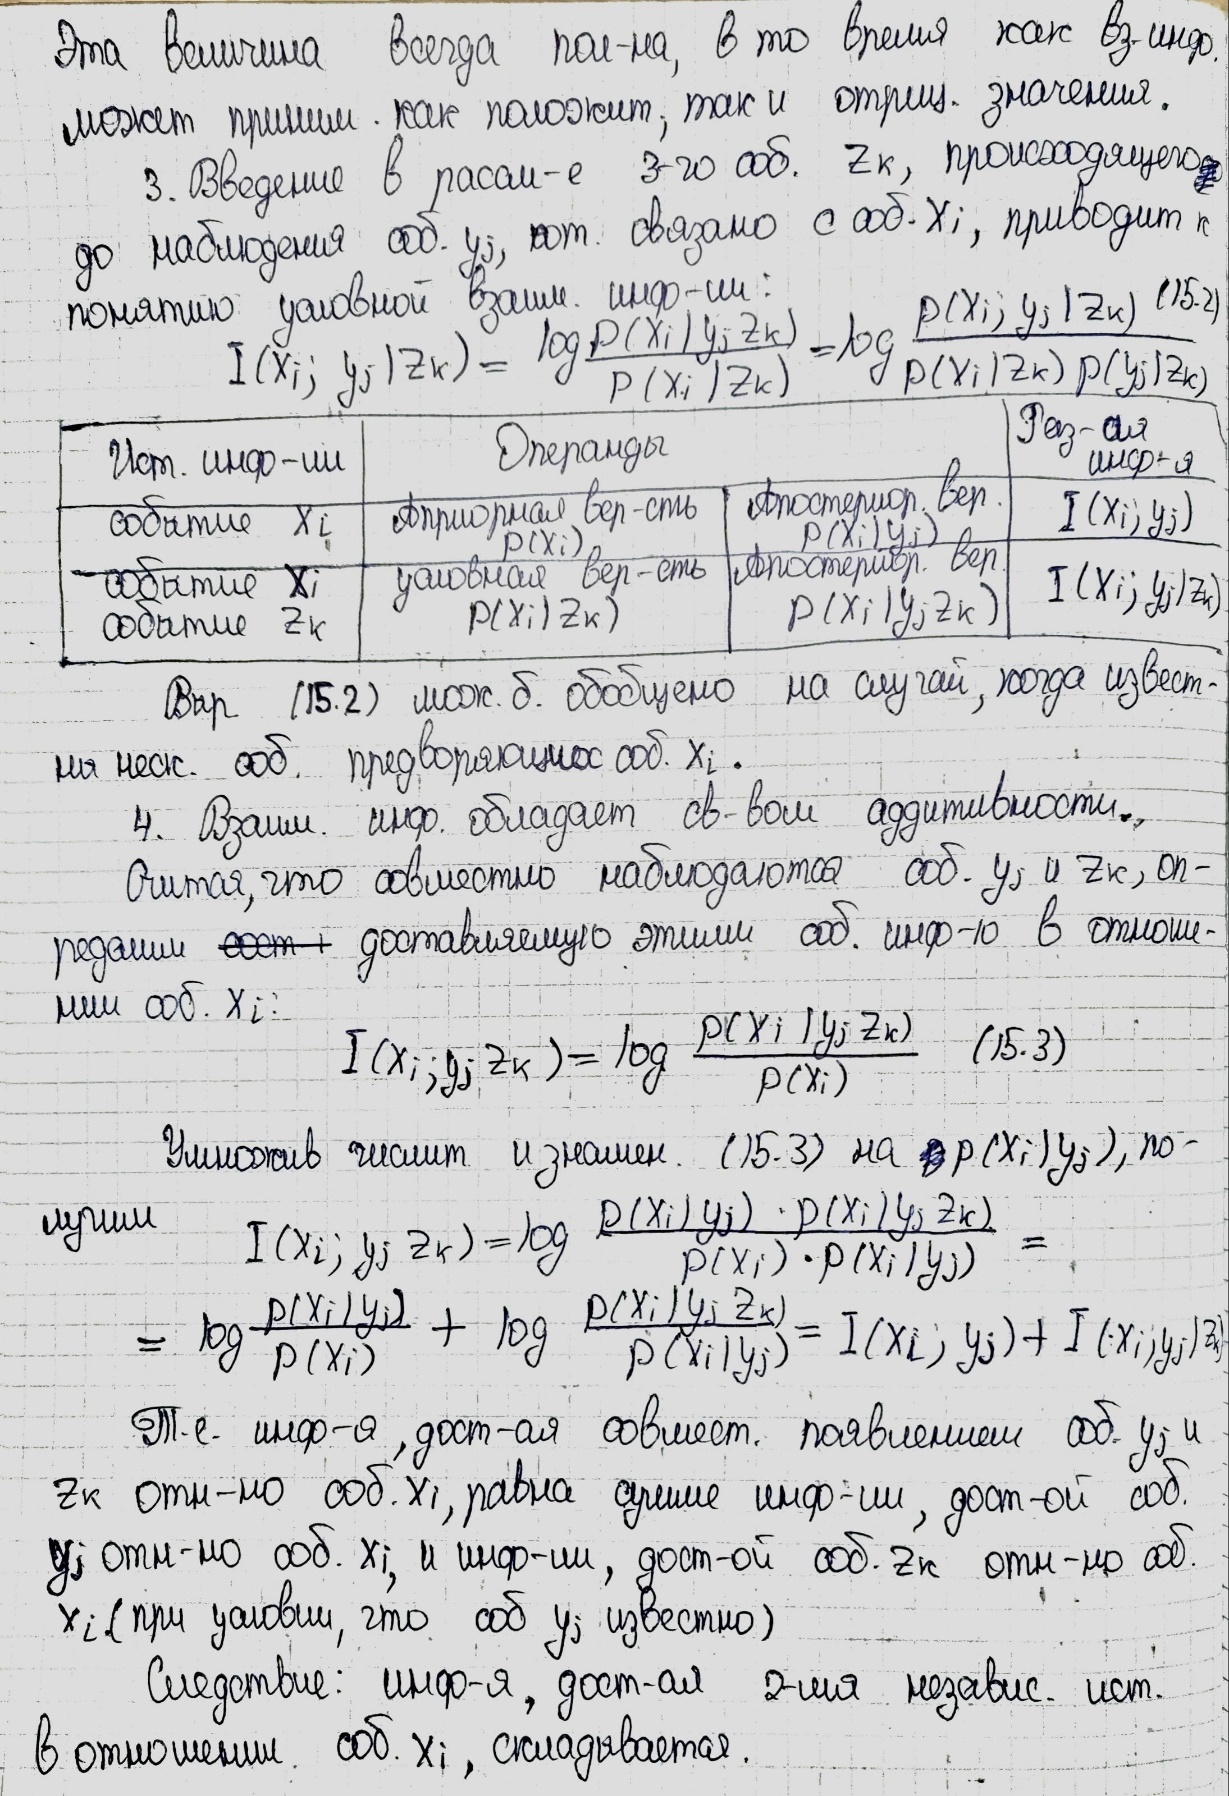 Эта величина всегда пол-на, в то время как вз-инф.
может приним. как положит, так и отриц. значения.
3. Введение в рассм-е 3-го соб. Zк, происходящего
до наблюдения соб. yj, кот. связано с соб. Xi, приводит к
понятию условной взаим. инф-ии:
I(Xi; yj|Zк) = log p(Xi|yj Zк) / p(Xi|Zк) = log p(Xi; yj|Zк) / p(Xi|Zк) p(yj|Zк) (15.2)
Ист. инф-ии Операнды Рез-ая инф-я
событие Xi Априорная вер-сть p(Xi) Апостериор. вер. p(Xi|yj) I(Xi; yj)
событие Xi событие Zк условная вер-сть p(Xi|Zк) Апостериор. вер. p(Xi|yj Zк) I(Xi; yj|Zк)
Выр (15.2) мож. б. обобщено на случай, когда извест-
ны неск. соб. предворяющих соб. Xi.
4. Взаим. инф. обладает св-вом аддитивности.
Считая, что совместно наблюдаются соб. yj и Zк, оп-
редели доставляемую этими соб. инф-ю в отноше-
нии соб. Xi:
I(Xi; yj Zк) = log p(Xi|yj Zк) / p(Xi) (15.3)
Умножив числит и знамен. (15.3) на p(Xi|yj), по-
лучим
I(Xi; yj Zк) = log p(Xi|yj) · p(Xi|yj Zк) / p(Xi) · p(Xi|yj) =
= log p(Xi|yj) / p(Xi) + log p(Xi|yj Zк) / p(Xi|yj) = I(Xi; yj) + I(Xi; yj|Zк)
Т.е. инф-я, дост-ая совмест. появлением соб. yj и
Zк отн-но соб. Xi, равна сумме инф-ии, дост-ой соб.
yj отн-но соб. Xi, и инф-ии, дост-ой соб. Zк отн-но соб.
Xi (при условии, что соб yj известно)
Следствие: инф-я, дост-ая 2-мя независ. ист.
в отношении соб. Xi, складывается.